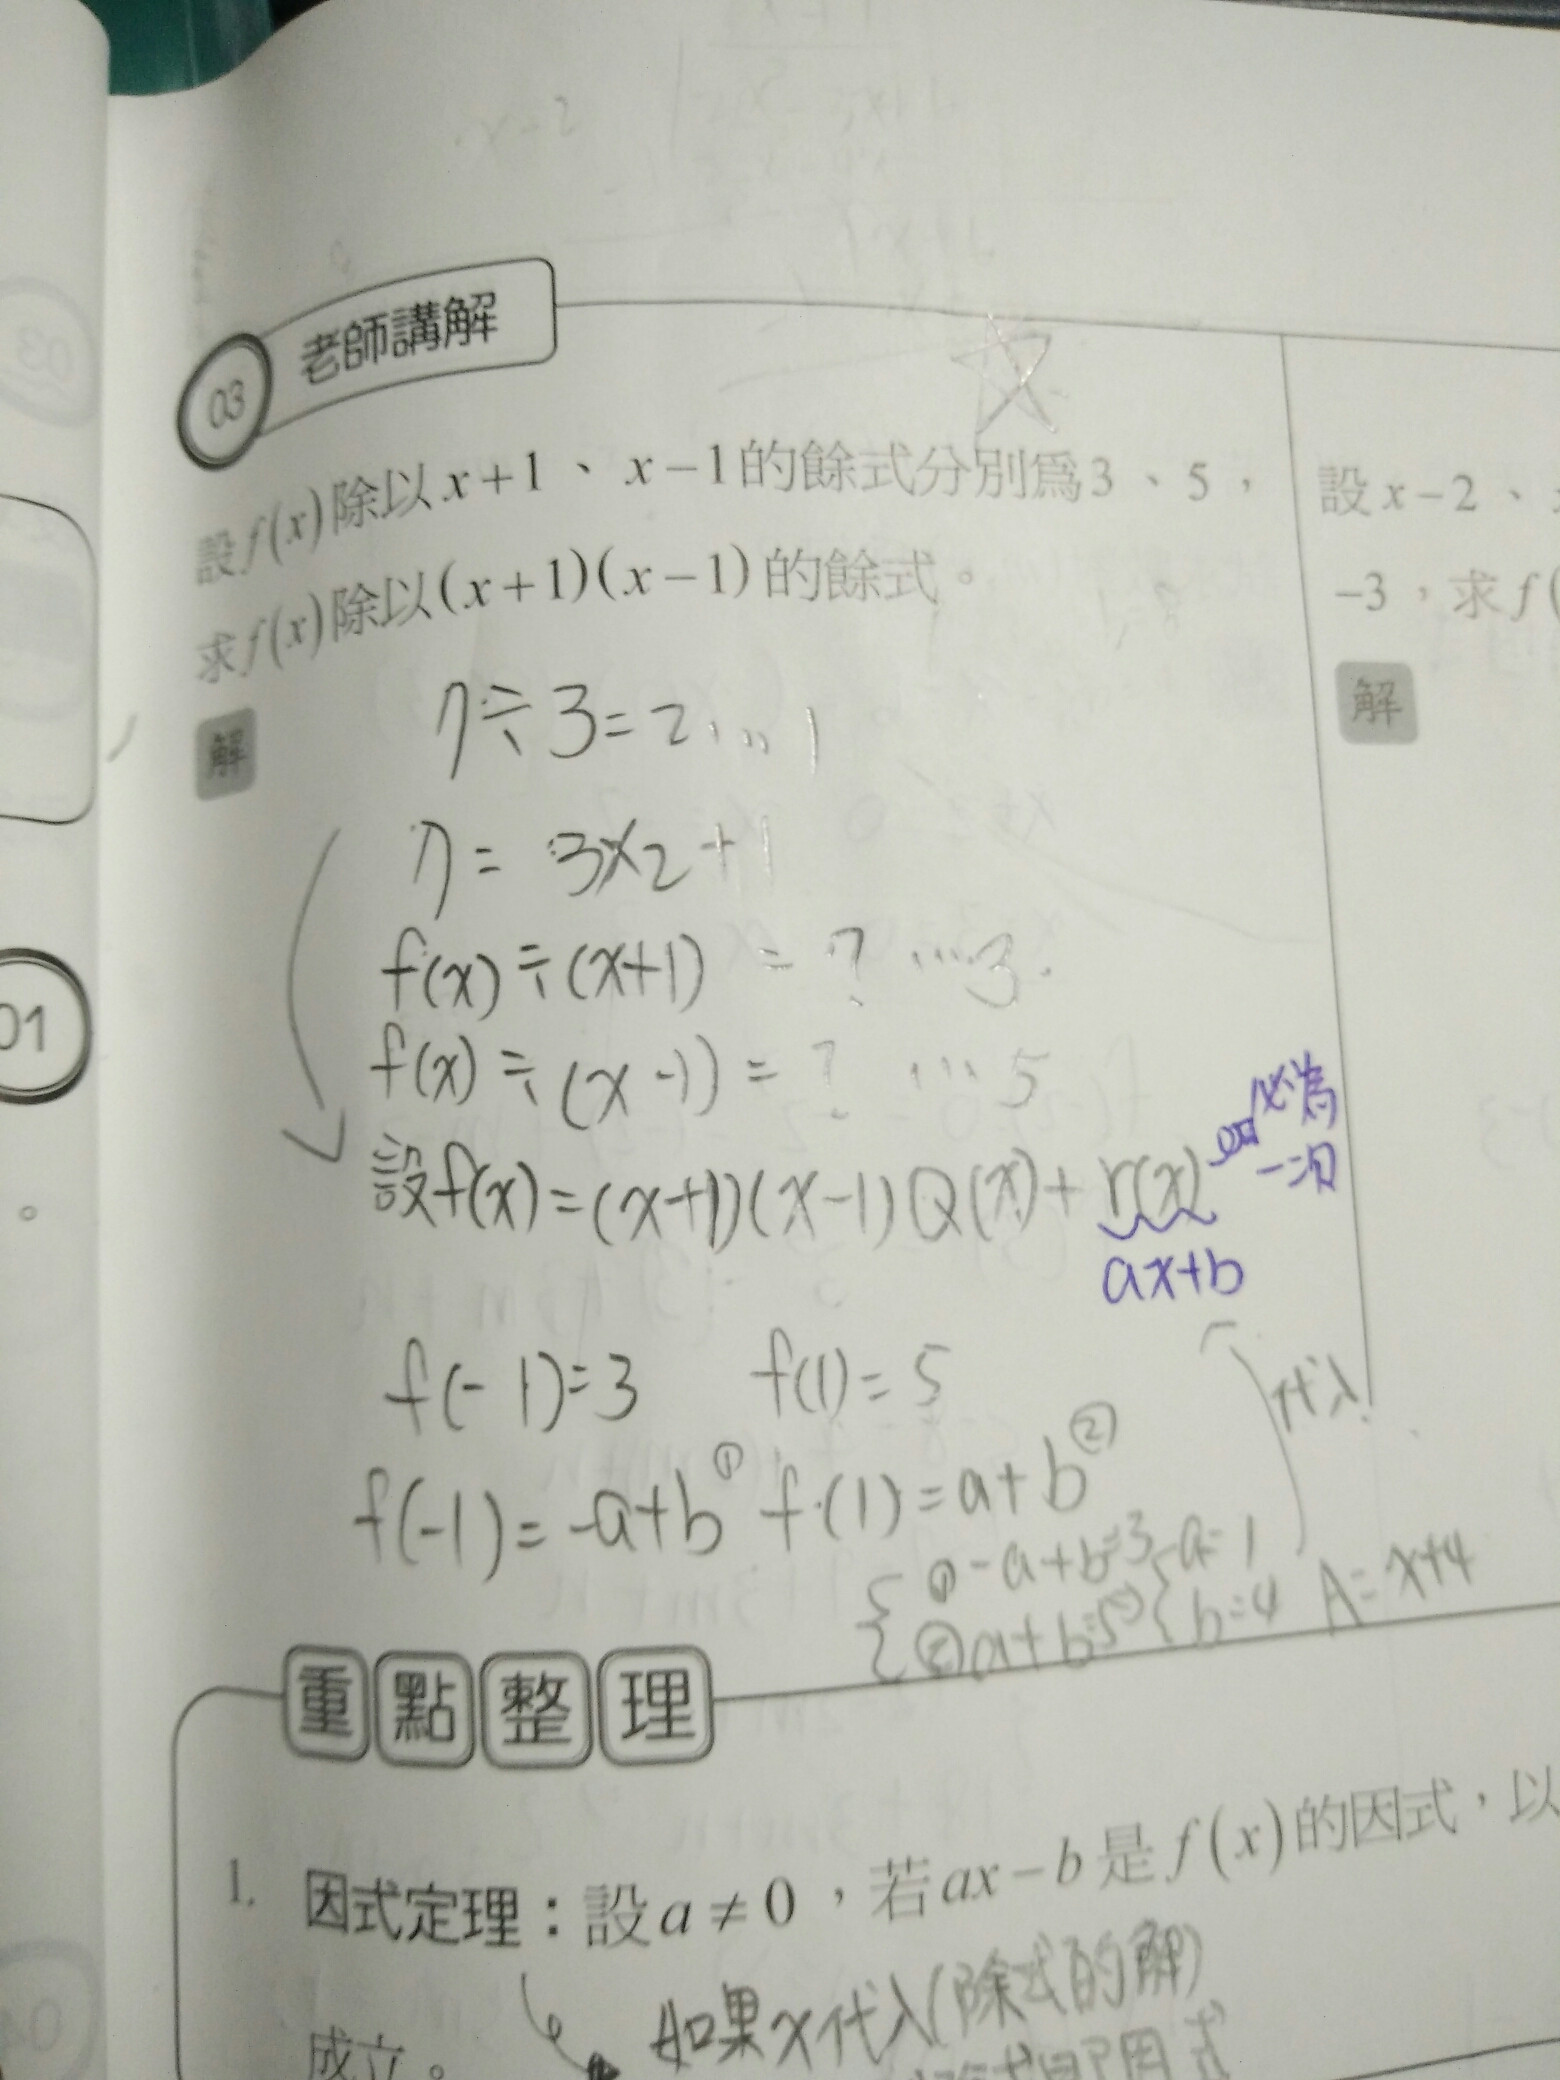 03 老師講解
設f(x)除以x+1、x-1的餘式分別為3、5，
求f(x)除以(x+1)(x-1)的餘式。
解
7÷3=2...1
7= 3×2+1
f(x)÷(x+1) = ? ...3
f(x)÷(x-1) = ? ...5
設f(x)=(x+1)(x-1)Q(x)+r(x)
必為
一次
ax+b
f(-1)=3 f(1)=5
代入
f(-1)=-a+b① f(1)=a+b②
{①-a+b=3 {a=1
②a+b=5 b=4 A=x+4
重點整理
1. 因式定理：設a≠0，若ax-b是f(x)的因式，以
如果x代入(除式的解)
成立。
設x-2、
-3，求f(
解
01